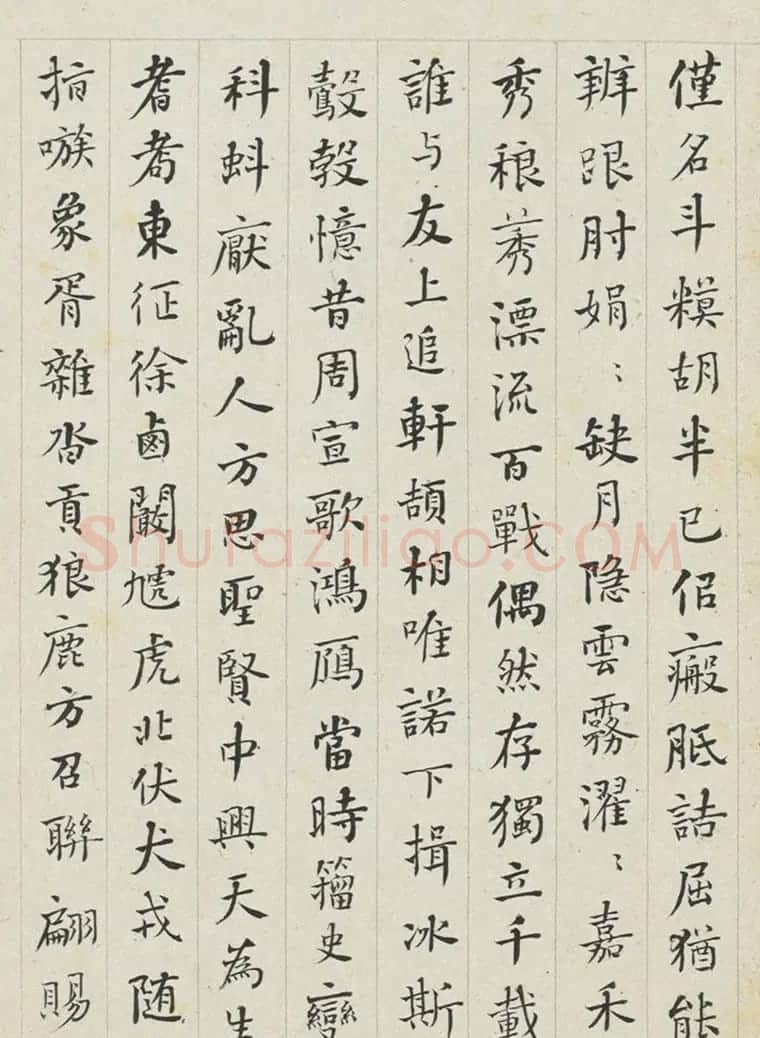 僅名斗糢胡半已侣瘢胝詰屈猶能
辨跟肘娟〻缺月隐雲霧濯〻嘉禾
秀稂莠漂流百戰偶然存獨立千載
誰与友上追軒頡相唯諾下揖冰斯
鷇㝅憶昔周宣歌鴻鴈當時籀史變
科蚪厭亂人方思聖賢中興天為生
耆耇東征徐鹵闞虓虎北伏犬戎随
指嗾象胥雜沓貢狼鹿方召聯翩賜
Shufaziliao.COM